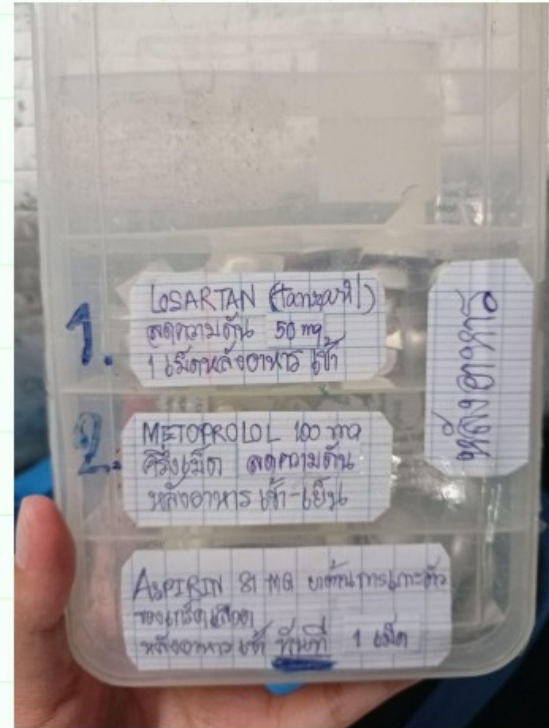 1.
LOSARTAN (tanzaril)
ลดความดัน 50 mg
1 เม็ดหลังอาหาร เช้า
หลังอาหาร
2.
METOPROLOL 100 mg
ครึ่งเม็ด ลดความดัน
หลังอาหาร เช้า-เย็น
ASPIRIN 81 MG ยาต้านการเกาะตัว
ของเกร็ดเลือด
หลังอาหาร เช้า ทันที 1 เม็ด